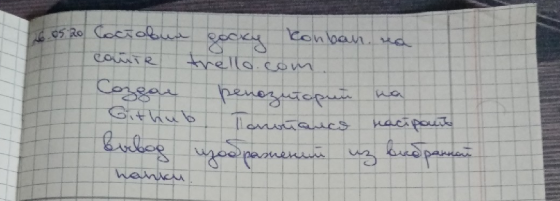 26.05.20 Составил доску Konban на
сайте trello.com.
Создал репозиторий на
Github. Попытался настроить
вывод изображений из выбранной
папки.